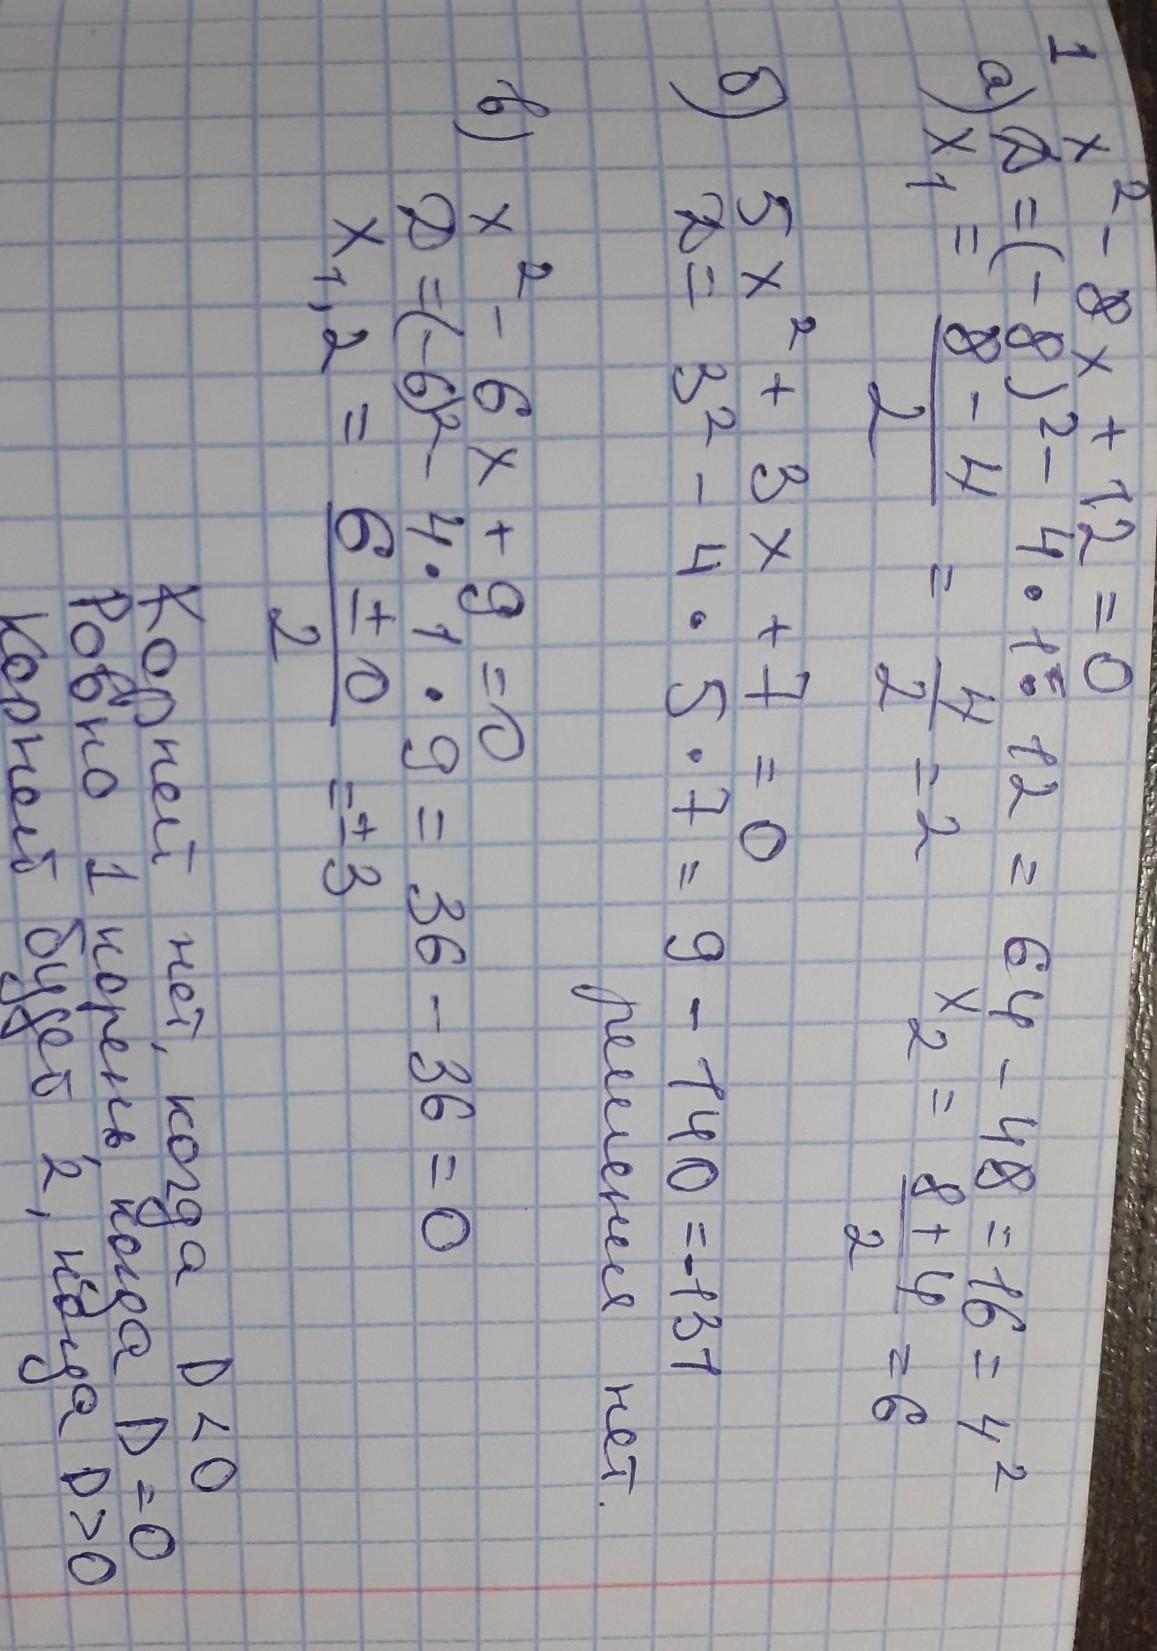 1 x² - 8x + 12 = 0
а) D = (-8)² - 4 · 1 · 12 = 64 - 48 = 16 = 4²
x1 = (8 - 4)/2 = 4/2 = 2 x2 = (8 + 4)/2 = 6
б) 5x² + 3x + 7 = 0
D = 3² - 4 · 5 · 7 = 9 - 140 = -131
решения нет.
в) x² - 6x + 9 = 0
D = (-6)² - 4 · 1 · 9 = 36 - 36 = 0
x1,2 = (6 ± 0)/2 = ±3
Корней нет, когда D < 0
Ровно 1 корень, когда D = 0
Корней будет 2, когда D > 0